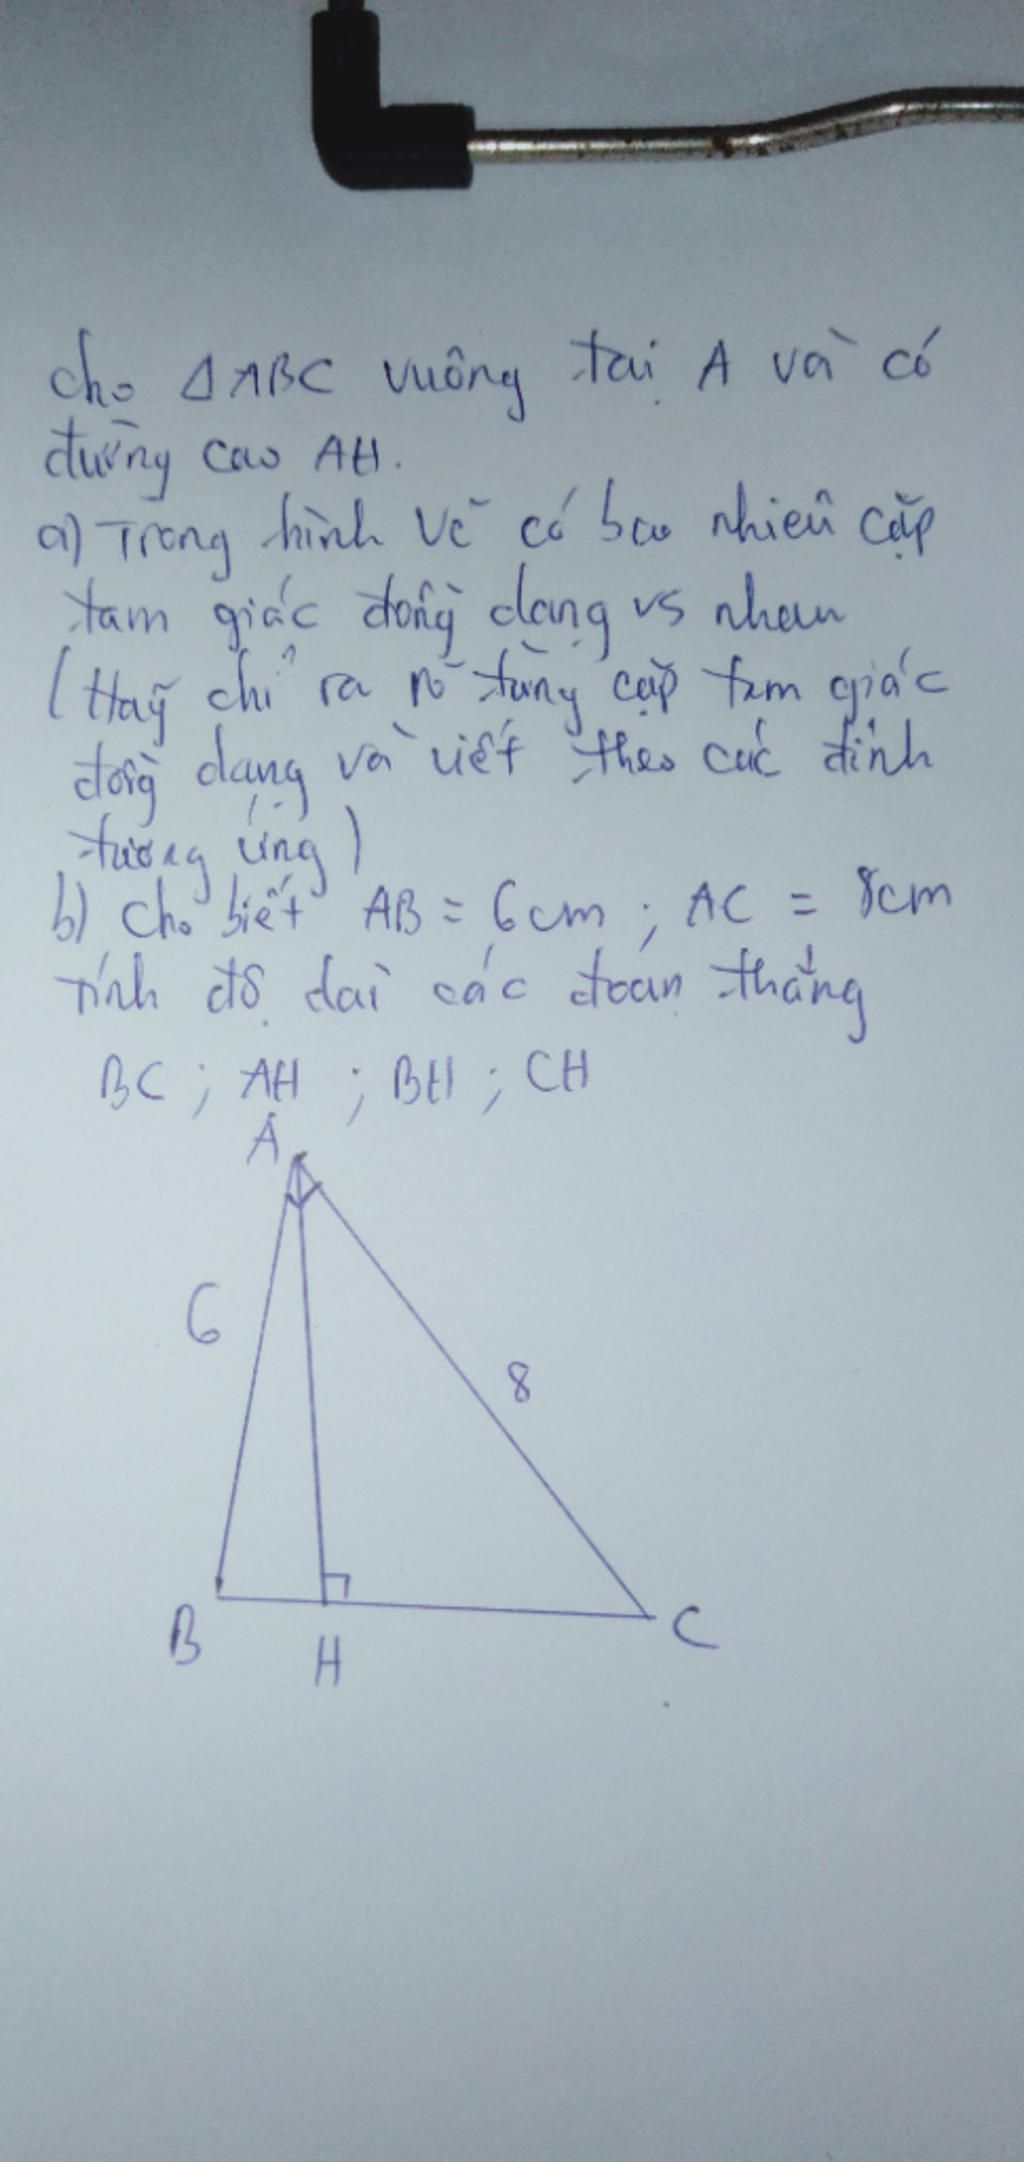 Cho ΔABC vuông tại A và có
đường cao AH.
a) Trong hình vẽ có bao nhiêu cặp
tam giác đồng dạng vs nhau
(Hãy chỉ ra rõ từng cặp tam giác
đồng dạng và viết theo các đỉnh
tương ứng)
b) Cho biết AB = 6cm ; AC = 8cm
Tính độ dài các đoạn thẳng
BC ; AH ; BH ; CH
A
6
8
B
H
C